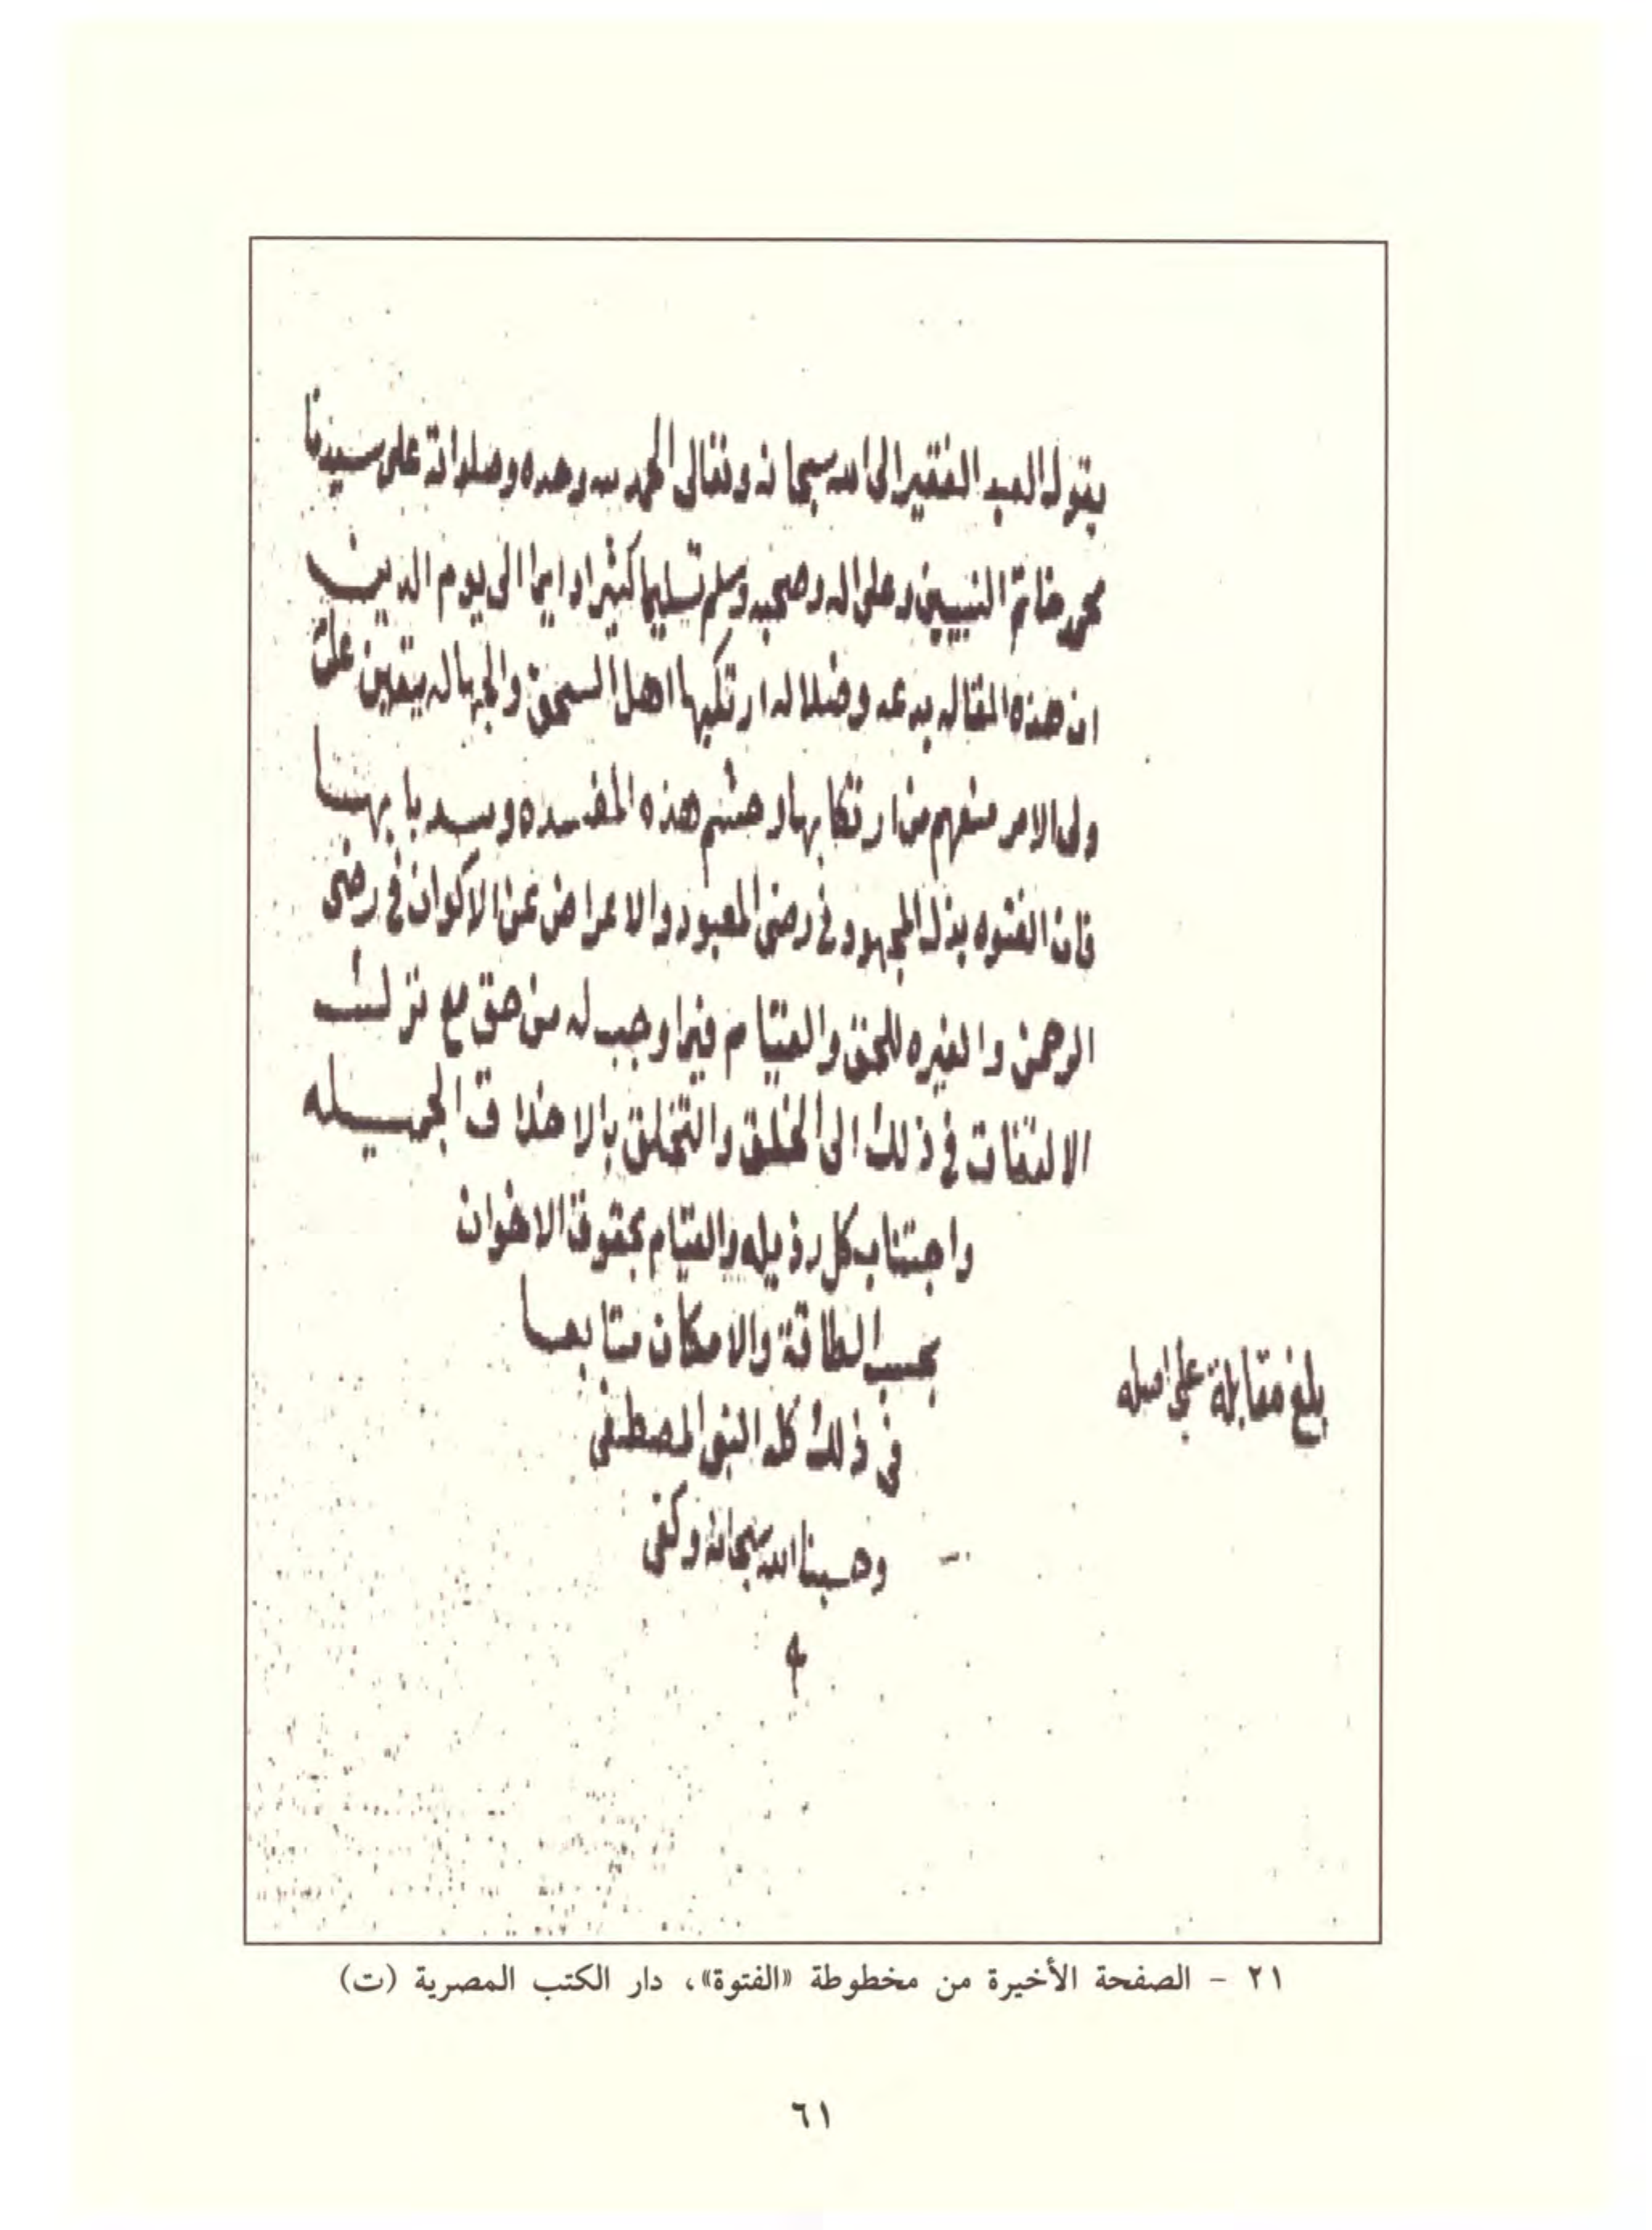 يقول العبد الفقير الى الله سبحانه وتعالى الحمد لله وحده وصلواته على سيدنا
محمد خاتم النبيين وعلى اله وصحبه وسلم تسليما كثيرا دايما الى يوم الدين
ان هذه المقاله بدعه وضلاله ارتكبها اهل السحق والجهاله يتعين على
ولى الامر منعهم من ارتكابها وحسم هذه المفسده وسد بابها
فان الفتوه بذل المجهود في رضى المعبود والاعراض عن الاكوان في رضى
الرحمن والغيره للحق والقيام فيما وجب له من حق مع ترك
الالتفات في ذلك الى الخلق والتخلق بالاخلاق الجميله
واجتناب كل رذيله والقيام بحقوق الاخوان
بحسب الطاقة والامكان متابعا
فى ذلك كله النبى المصطفى
وحسبنا الله سبحانه وكفى
م
بلغ مقابلة على اصله
٢١ - الصفحة الأخيرة من مخطوطة «الفتوة»، دار الكتب المصرية (ت)
٦١